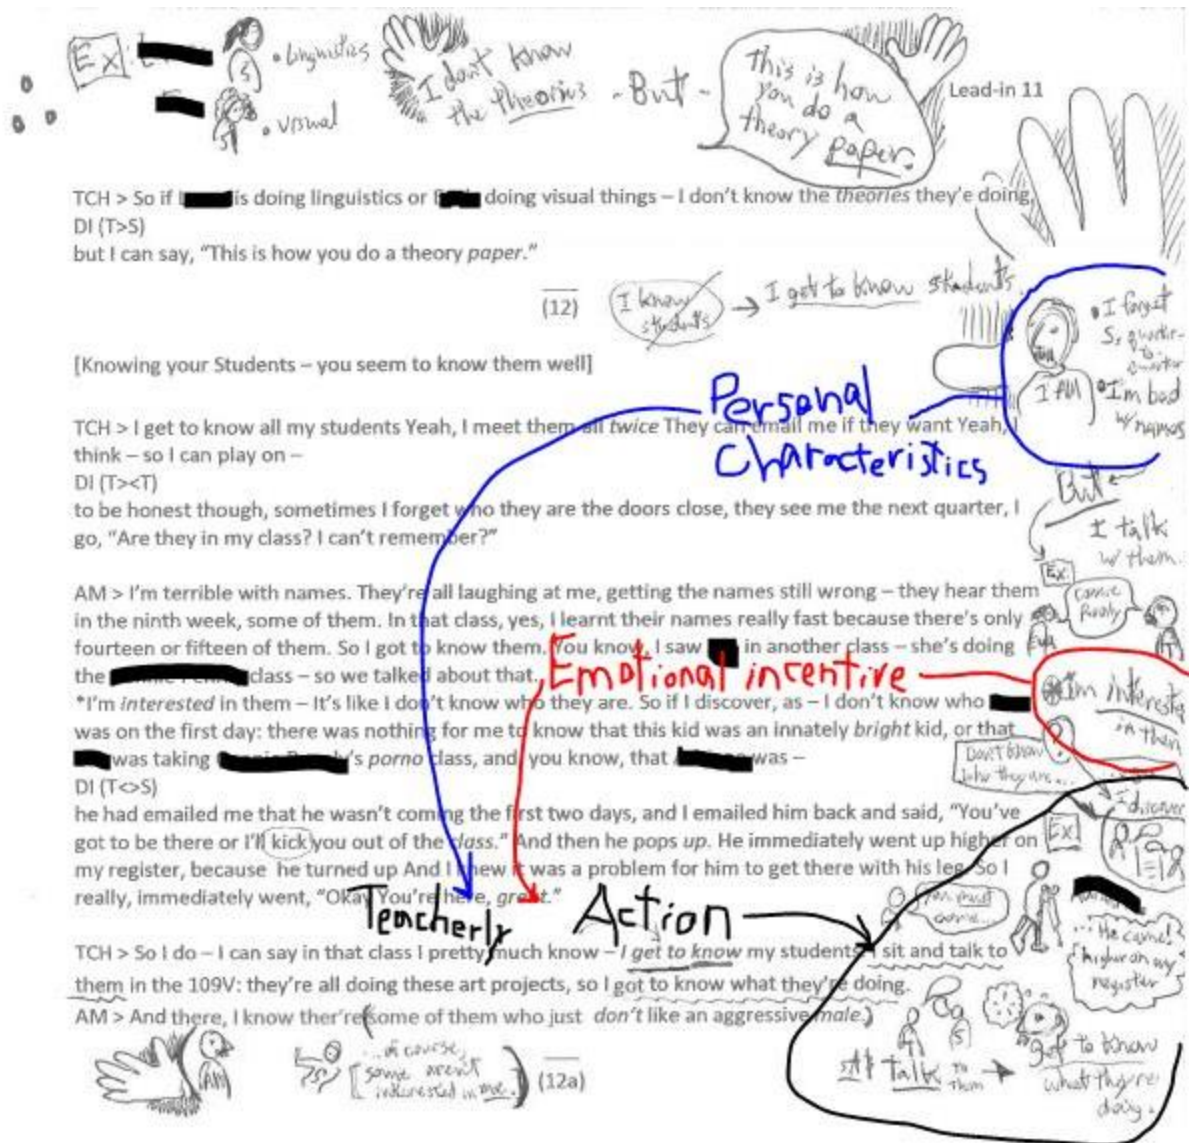 Ex.
• Linguistics
• visual
I don't know
the theories
- But -
This is how
you do a
theory paper.
Lead-in 11
TCH > So if is doing linguistics or doing visual things – I don't know the theories they'e doing,
DI (T>S)
but I can say, "This is how you do a theory paper."
(12)
I know
students
→ I get to know students.
I AM
• I forget
S, quarter-
to-
quarter
• I'm bad
w/ names
[Knowing your Students – you seem to know them well]
Personal
Characteristics
TCH > I get to know all my students Yeah, I meet them all twice They can email me if they want Yeah, I
think – so I can play on –
DI (T><T)
to be honest though, sometimes I forget who they are the doors close, they see me the next quarter, I
go, "Are they in my class? I can't remember?"
But
I talk
w/ them.
Ex.
AM > I'm terrible with names. They're all laughing at me, getting the names still wrong – they hear them
in the ninth week, some of them. In that class, yes, I learnt their names really fast because there's only
fourteen or fifteen of them. So I got to know them. You know, I saw in another class – she's doing
the class – so we talked about that.
Emotional incentive
I'm interested
in them
*I'm interested in them – It's like I don't know who they are. So if I discover, as – I don't know who
was on the first day: there was nothing for me to know that this kid was an innately bright kid, or that
was taking 's porno class, and you know, that was –
Don't know
who they are...
I discover
DI (T<>S)
he had emailed me that he wasn't coming the first two days, and I emailed him back and said, "You've
got to be there or I'll kick you out of the class." And then he pops up. He immediately went up higher on
my register, because he turned up And I knew it was a problem for him to get there with his leg So I
really, immediately went, "Okay You're here, great."
Ex.
You must
come...
... He came!
higher on my
register
Teacherly Action
TCH > So I do – I can say in that class I pretty much know – I get to know my students I sit and talk to
them in the 109V: they're all doing these art projects, so I got to know what they're doing.
AM > And there, I know ther're (some of them who just don't like an aggressive male.)
AM
S
...of course,
some aren't
interested in me.
(12a)
sit talk to
them
→
get to know
what they're
doing.